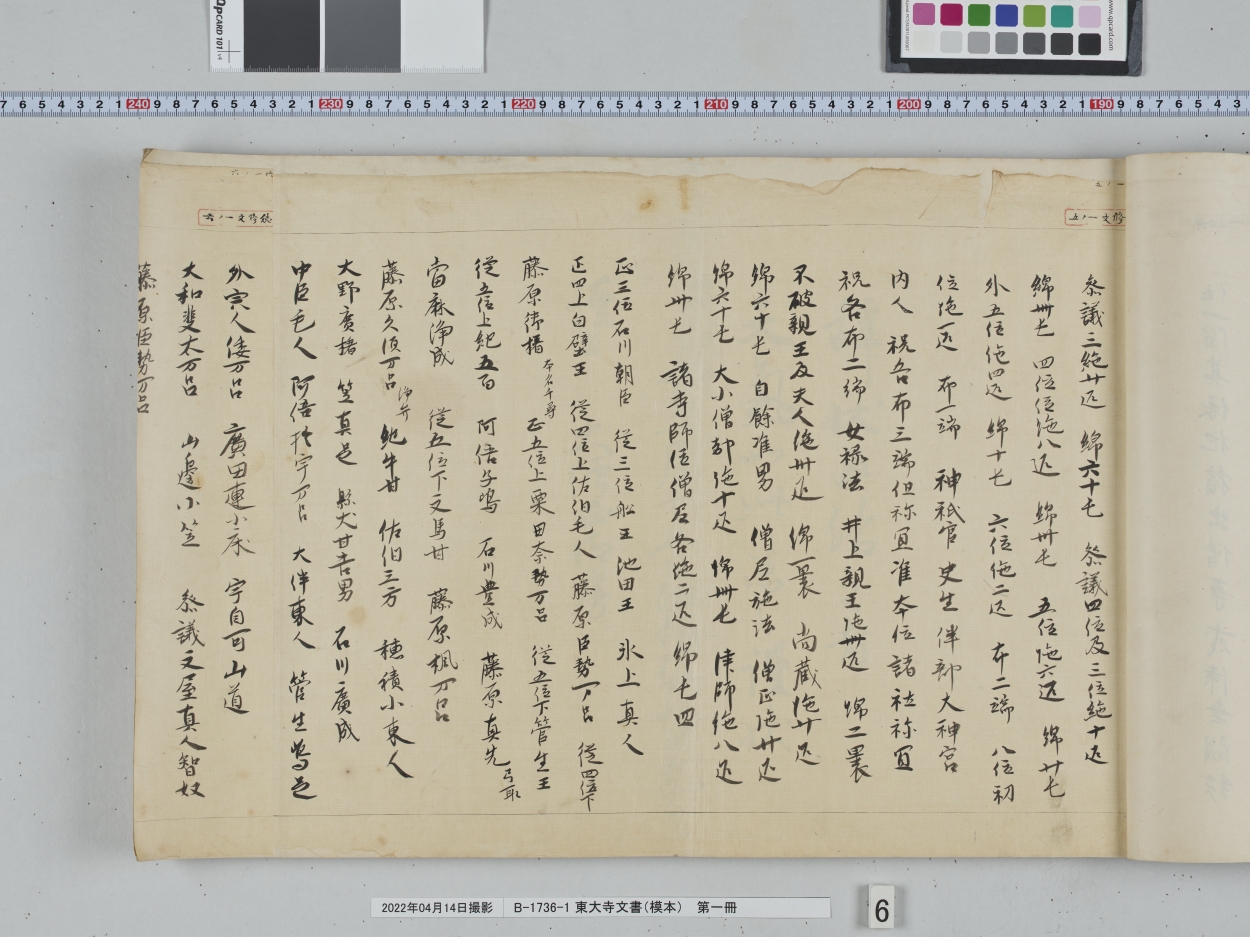 参議三絁廿疋 綿六十屯 参議四位及三位絁十疋
綿卌屯 四位位絁八疋 綿卅屯 五位絁六疋 綿廿屯
外五位絁四疋 綿十屯 六位絁二疋 布二端 八位初
位絁一疋 布一端 神祇官 史生 伴部 大神宮
内人 祝各布三端但祢冝准本位諸社祢冝
祝各布二端 女禄法 井上親王絁卌疋 綿二褁
不破親王及夫人絁卅疋 綿一褁 尚蔵絁廿疋
綿六十屯 自餘准男 僧尼施法 僧正絁廿疋
綿六十屯 大小僧都絁十疋 綿卌屯 律師絁八疋
綿卅屯 諸寺師位僧尼各絁二疋 綿屯四
正三位石川朝臣 従三位船王 池田王 氷上真人
正四上白壁王 従四位上佐伯毛人 藤原臣勢万呂 従四位下
藤原御楯 本名千尋 正五位上粟田奈勢万呂 従五位下管生王
従五位上紀五百 阿倍子嶋 石川豊成 藤原真先 弓取
當麻浄成 従五位下文馬甘 藤原楓万呂
藤原久須万呂 浄弁 紀牛甘 佐伯三方 穂積小東人
大野廣楯 笠真足 縣犬甘吉男 石川廣成
中臣毛人 阿倍許宇万呂 大伴東人 管生嶋足
外寅人倭万呂 廣田連小床 宇自可山道
大和斐太万呂 山邊小笠 参議文屋真人智奴
藤原臣勢万呂
五ノ一
続修文一ノ五
六ノ一
続修文一ノ六
2022年04月14日撮影 B-1736-1 東大寺文書(模本) 第一冊
6
QPCARD 101 v4
www.qpcard.com
240 230 220 210 200 190